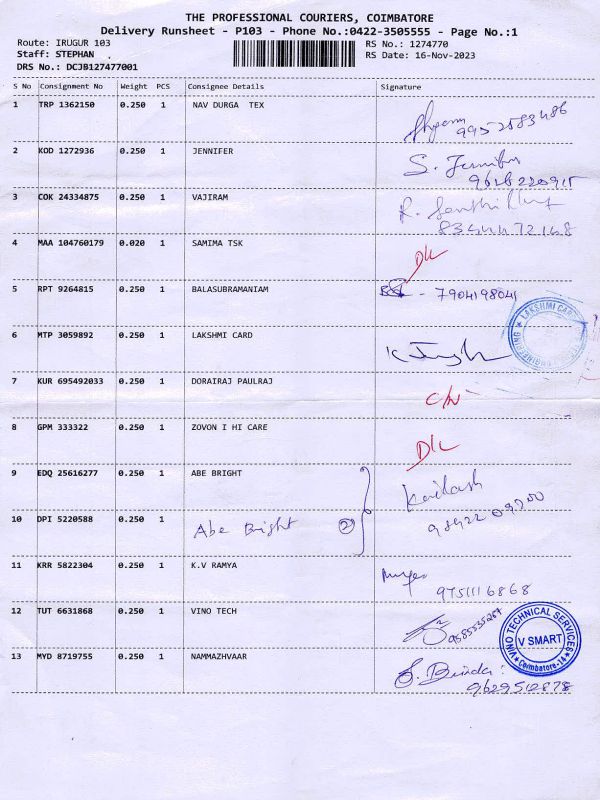 THE PROFESSIONAL COURIERS, COIMBATORE
Delivery Runsheet - P103 - Phone No.:0422-3505555 - Page No.:1
Route: IRUGUR 103
RS No.: 1274770
Staff: STEPHAN
RS Date: 16-Nov-2023
DRS No.: DCJB127477001
S No Consignment No Weight PCS Consignee Details Signature
1 TRP 1362150 0.250 1 NAV DURGA TEX
2 KOD 1272936 0.250 1 JENNIFER S. Jennifer
3 COK 24334875 0.250 1 VAJIRAM
4 MAA 104760179 0.020 1 SAMIMA TSK
5 RPT 9264815 0.250 1 BALASUBRAMANIAM - 7904198041
6 MTP 3059892 0.250 1 LAKSHMI CARD
7 KUR 695492033 0.250 1 DORAIRAJ PAULRAJ
8 GPM 333322 0.250 1 ZOVON I HI CARE
9 EDQ 25616277 0.250 1 ABE BRIGHT Kailash
10 DPI 5220588 0.250 1 Abe Bright 2
11 KRR 5822304 0.250 1 K.V RAMYA
9751116868
12 TUT 6631868 0.250 1 VINO TECH 9585535267
VINO TECHNICAL SERVICES
V SMART
Coimbatore-14
13 MYD 8719755 0.250 1 NAMMAZHVAAR